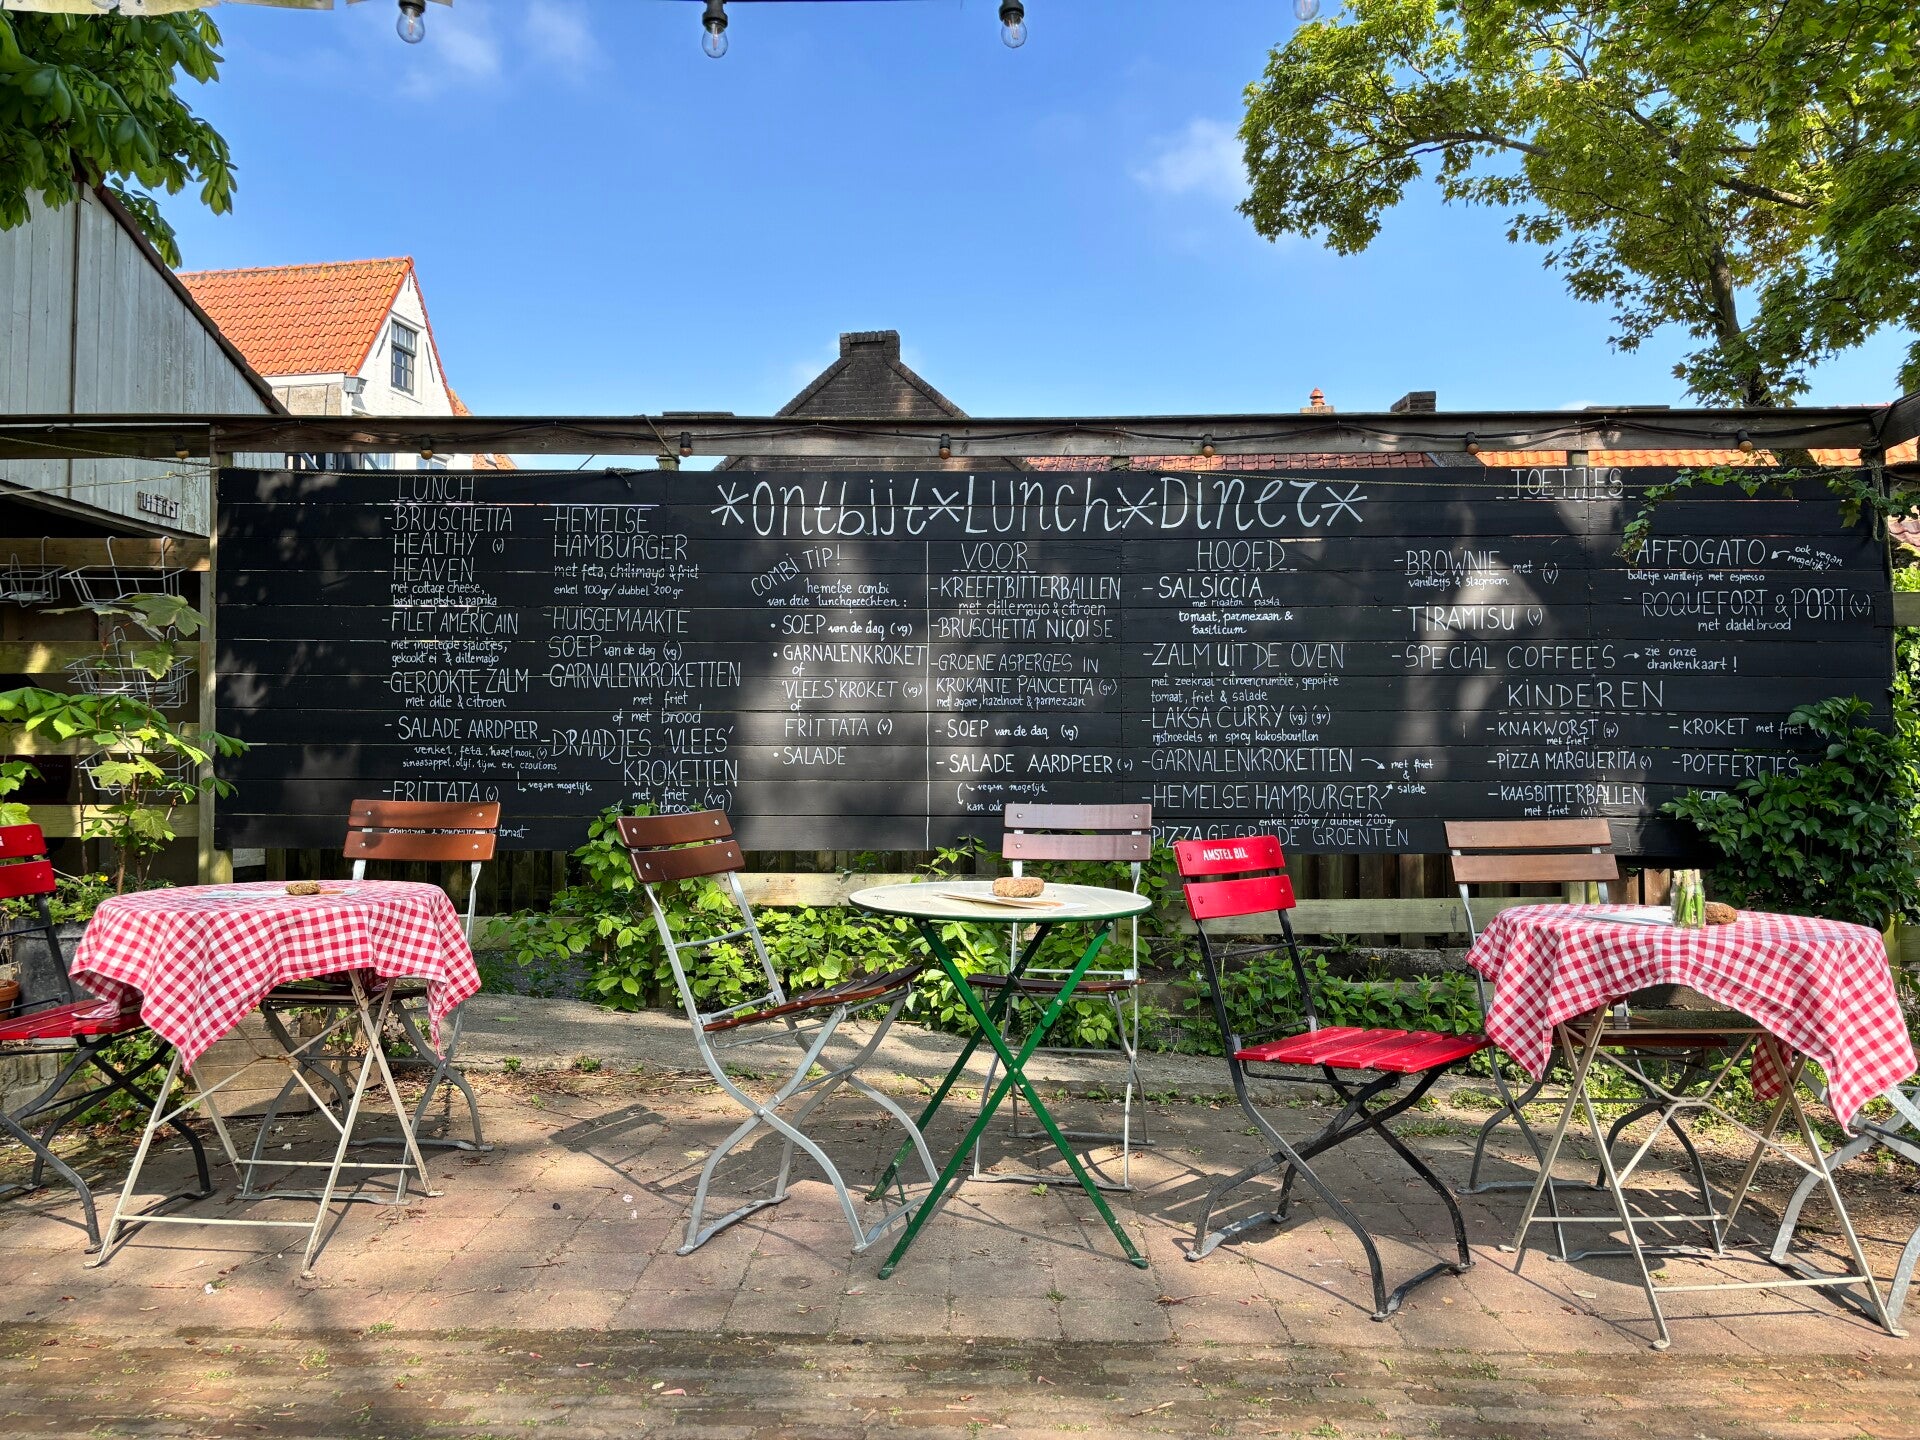 *Ontbijt*Lunch*Diner*
LUNCH
-BRUSCHETTA
HEALTHY (v)
HEAVEN
met cottage cheese,
basilicumpesto & paprika
-FILET AMÉRICAIN
met ingelegde sjalotjes,
gekookt ei & dillemayo
-GEROOKTE ZALM
met dille & citroen
-SALADE AARDPEER
venkel, feta, hazelnoot, (v)
sinaasappel, olijf, tijm en croutons
vegan mogelijk
-FRITTATA (v)
tomaat
-HEMELSE
HAMBURGER
met feta, chilimayo & friet
enkel 100gr/dubbel 200gr
-HUISGEMAAKTE
SOEP van de dag (vg)
-GARNALENKROKETTEN
met friet
of met brood
-DRAADJES 'VLEES'
KROKETTEN
met friet (vg)
brood
COMBI TIP!
hemelse combi
van drie lunchgerechten:
• SOEP van de dag (vg)
• GARNALENKROKET
of
'VLEES'KROKET (vg)
of
FRITTATA (v)
• SALADE
VOOR
-KREEFTBITTERBALLEN
met dillemayo & citroen
-BRUSCHETTA NIÇOISE
-GROENE ASPERGES IN
KROKANTE PANCETTA (gv)
met agave, hazelnoot & parmezaan
-SOEP van de dag (vg)
-SALADE AARDPEER (v)
(vegan mogelijk
kan ook
HOOFD
-SALSICCIA
met rigatoni pasta,
tomaat, parmezaan &
basilicum
-ZALM UIT DE OVEN
met zeekraal-citroencrumble, gepofte
tomaat, friet & salade
-LAKSA CURRY (vg) (gv)
rijstnoedels in spicy kokosbouillon
-GARNALENKROKETTEN → met friet
&
salade
-HEMELSE HAMBURGER
enkel 100gr/dubbel 200gr
PIZZA GEGRILDE GROENTEN
TOETJES
-BROWNIE met (v)
vanilleijs & slagroom
-TIRAMISU (v)
-SPECIAL COFFEES → zie onze
drankenkaart!
AFFOGATO ook vegan
mogelijk!
bolletje vanilleijs met espresso
-ROQUEFORT & PORT (v)
met dadelbrood
KINDEREN
-KNAKWORST (gv)
met friet
-PIZZA MARGUERITA (v)
-KAASBITTERBALLEN
met friet (v)
-KROKET met friet
-POFFERTJES
AMSTEL BIL